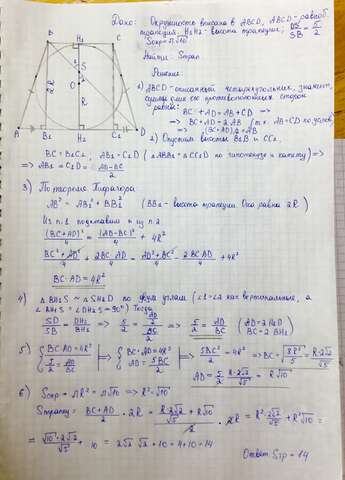 Дано: Окружность вписана в ABCD, ABCD-равноб.
трапеция, H1H2-высота трапеции; DS/SB = 5/2
Sокр = π√10
Найти: Sтрап
Решение
1) ABCD-описанный четырехугольник, значит,
суммы длин его противоположных сторон
равны:
BC + AD = AB + CD =>
=> BC + AD = 2AB (т.к. AB=CD по услов)
=> (BC+AD)/2 = AB
2) Опустим высоты BB1 и CC1,
B H1 C
S
2R O
R
A B1 H2 C1 D
BC = B1C1, AB1 = C1D (△ABB1 = △CC1D по гипотенузе и катету) =>
=> AB1 = C1D = (AD-BC)/2
3) По теореме Пифагора
AB² = AB1² + BB1² (BB1 - высота трапеции. Она равна 2R)
Из п.1 подставим и из п.2
(BC+AD)²/4 = (AD-BC)²/4 + 4R²
BC²+AD²/4 + 2BC·AD/4 = AD²+BC²/4 - 2BC·AD/4 + 4R²
BC·AD = 4R²
4) △BH1S ~ △SH2D по двум углам (∠1=∠2 как вертикальные, а
∠BH1S = ∠DH2S = 90°) Тогда
SD/SB = DH2/BH1 => 5/2 = (AD/2)/(BC/2) => 5/2 = AD/BC (AD = 2H2D BC = 2BH1)
5) { BC·AD = 4R² 5/2 = AD/BC => { BC·AD = 4R² AD = 5BC/2 => 5BC²/2 = 4R² => BC = √(8R²/5) = R·2√2/√5
AD = 5/2 · R·2√2/√5 = R√10
6) Sокр = πR² = π√10 => R² = √10
Sтрапец = (BC+AD)/2 · 2R = (R·2√2/√5 + R√10)/2 · 2R = R²·2√2/√5 + R²√10 =
= √10·2√2/√5 + 10 = 2√2·√2 + 10 = 4 + 10 = 14
Ответ: Sтр = 14